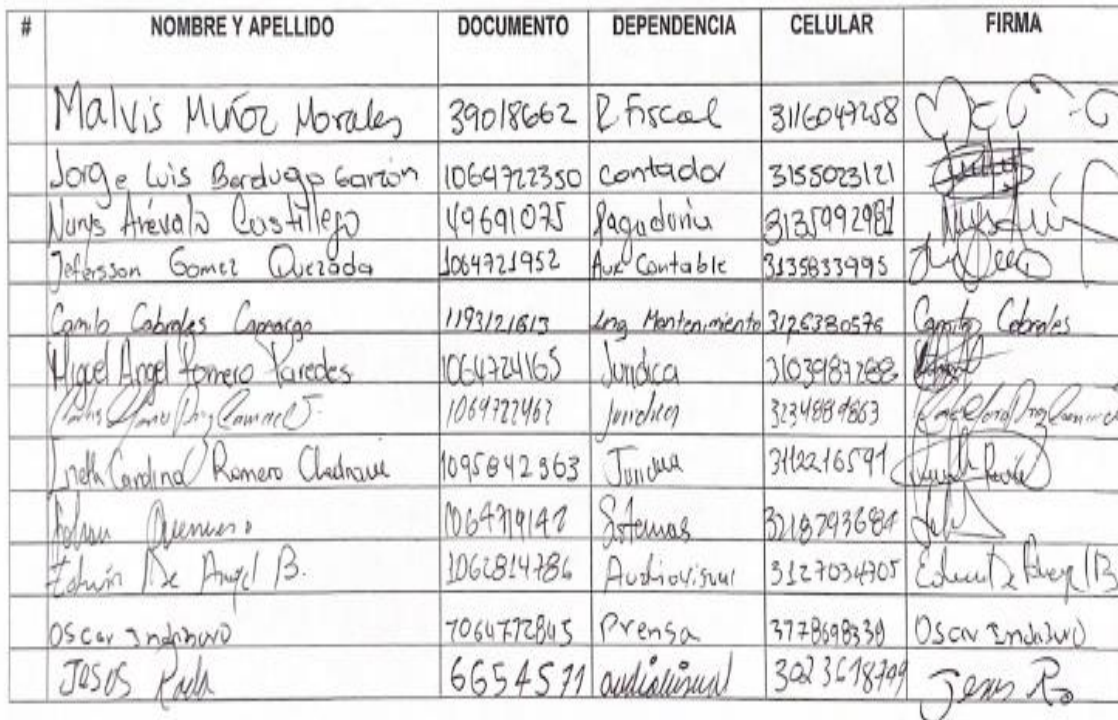 # NOMBRE Y APELLIDO DOCUMENTO DEPENDENCIA CELULAR FIRMA
Malvis Muñoz Morales 39018662 R. Fiscal 3116047258
Jorge Luis Berdugo Garzón 1064722350 contador 3155023121
Nurys Arévalo Castillejo 49691075 Pagaduria 3135992981
Jefersson Gomez Quezada 1064721952 Aux Contable 3135833995
Camilo Cabrales Camargo 1193121613 Ing Mantenimiento 3126380576 Camilo Cabrales
Miguel Angel Romero Paredes 1064724165 Juridica 3103987288
1064722462 Juridica 3234889863
Romero 1095842963 3112216591
1064719142 Sistemas 3218793684
Edwin De Angel B. 1062814786 Audiovisual 3127034705
Oscar 7064772845 Prensa 3778698338 Oscar
Jesus Rada 6654571 audiovisual